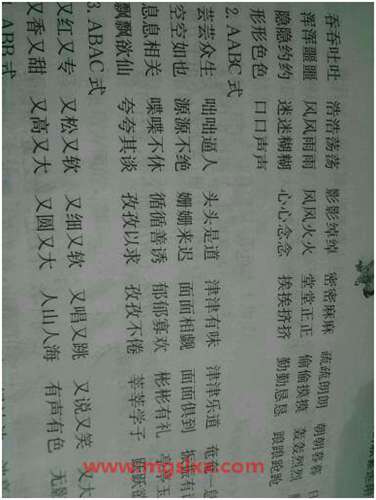 吞吞吐吐 浩浩荡荡 影影绰绰 密密麻麻 疏疏朗朗 朝朝暮暮
浑浑噩噩 风风雨雨 风风火火 堂堂正正 偷偷摸摸 轰轰烈烈
隐隐约约 迷迷糊糊 心心念念 挨挨挤挤 勤勤恳恳 踉踉跄跄
形形色色 口口声声
2. AABC 式
芸芸众生 咄咄逼人 头头是道 津津有味 津津乐道 奄奄一
空空如也 源源不绝 姗姗来迟 面面相觑 面面俱到
息息相关 喋喋不休 循循善诱 郁郁寡欢 彬彬有礼
飘飘欲仙 夸夸其谈 孜孜以求 孜孜不倦 莘莘学子
3. ABAC 式
又红又专 又松又软 又细又软 又唱又跳 又说又笑 又大
又香又甜 又高又大 又圆又大 人山人海 有声有色 无
ABB 式
www.mgslxx.com